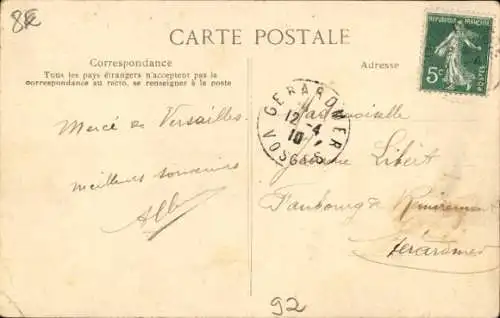 8€
CARTE POSTALE
Correspondance
Tous les pays étrangers n'acceptent pas la
correspondance au recto, se renseigner à la poste
Adresse
REPUBLIQUE FRANÇAISE
5c
POSTES
GERARDMER
12-4
10
VOSGES
Mercé de Versailles.
meilleurs souvenirs
Mademoiselle
Jeanne Libert
Faubourg de Remiremont
Gérardmer
92